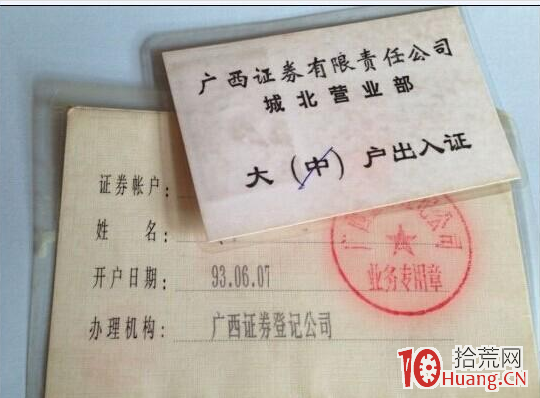 广西证券有限责任公司
城北营业部
大（中）户出入证
证券帐户：
姓　名：
开户日期：93.06.07
办理机构：广西证券登记公司
业务专用章
10 拾荒网
Huang.CN